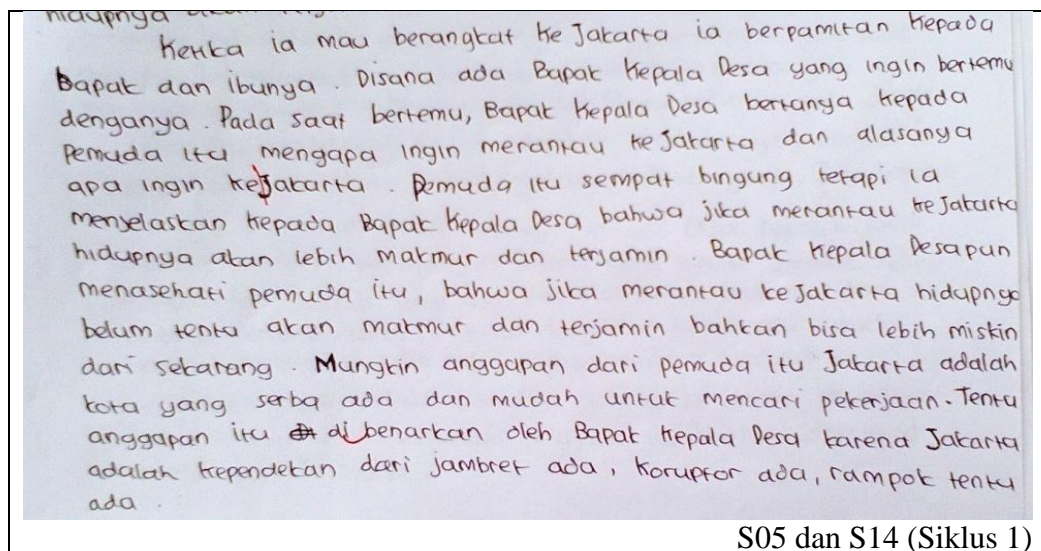 hidupnya
Ketika ia mau berangkat ke Jakarta ia berpamitan kepada
Bapak dan ibunya. Disana ada Bapak Kepala Desa yang ingin bertemu
denganya. Pada saat bertemu, Bapak Kepala Desa bertanya kepada
Pemuda itu mengapa ingin merantau ke Jakarta dan alasanya
apa ingin keJakarta. Pemuda itu sempat bingung tetapi ia
menjelaskan kepada Bapak Kepala Desa bahwa jika merantau ke Jakarta
hidupnya akan lebih makmur dan terjamin. Bapak Kepala Desapun
menasehati pemuda itu, bahwa jika merantau ke Jakarta hidupnya
belum tentu akan makmur dan terjamin bahkan bisa lebih miskin
dari sekarang. Mungkin anggapan dari pemuda itu Jakarta adalah
kota yang serba ada dan mudah untuk mencari pekerjaan. Tentu
anggapan itu di benarkan oleh Bapak Kepala Desa karena Jakarta
adalah kependekan dari jambret ada, Koruptor ada, rampok tentu
ada.
S05 dan S14 (Siklus 1)